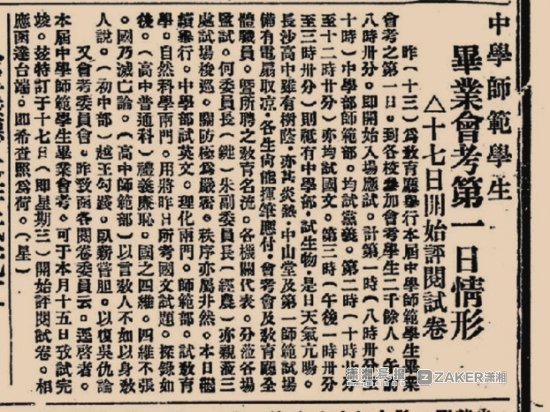 中學師範學生
畢業會考第一日情形
△十七日開始評閱試卷
昨(十三)爲教育廳舉行本屆中學師範學生畢業
會考之第一日。到各校參加會考學生二千餘人。午前
八時卅分。即開始入場應試。計第一時(八時卅分至
十時)中學部師範部。均試黨義。第二時(十時卅分
至十二時卅分)亦均試國文。第三時(午後一時卅分
至三時卅分)則祗有中學部。試生物。是日天氣亢暘。
長沙高中雖有樹蔭。亦甚炎熱。中山堂及第一師範試場
備有電扇取凉。各生尙能揮筆應付。會考會及教育廳全
體職員。曁所聘之教育名流。各機關代表。分蒞各場
監試。何委員長(鍵)朱副委員長(經農)亦親蒞三
處試場梭巡。關防極爲嚴密。秩序亦屬井然。本日繼
續舉行。中學部試英文。理化兩門。師範部。試教育
學。自然科學兩門。用將昨日所考國文試題。探錄如
後。(高中普通科)禮義廉恥。國之四維。四維不張
。國乃滅亡論。(高中師範部)以言教人不如以身教
人說。(初中部)越王勾踐。臥薪嘗胆。以復吳仇論
又會考委員會。昨致函各閱卷委員云。逕啓者。
本屆中學師範學生畢業會考。可于本月十五日攷試完
竣。茲特訂于十七日(即星期三)開始評閱試卷。相
應函達台端。即希查照爲荷。(星)
ZAKER潇湘